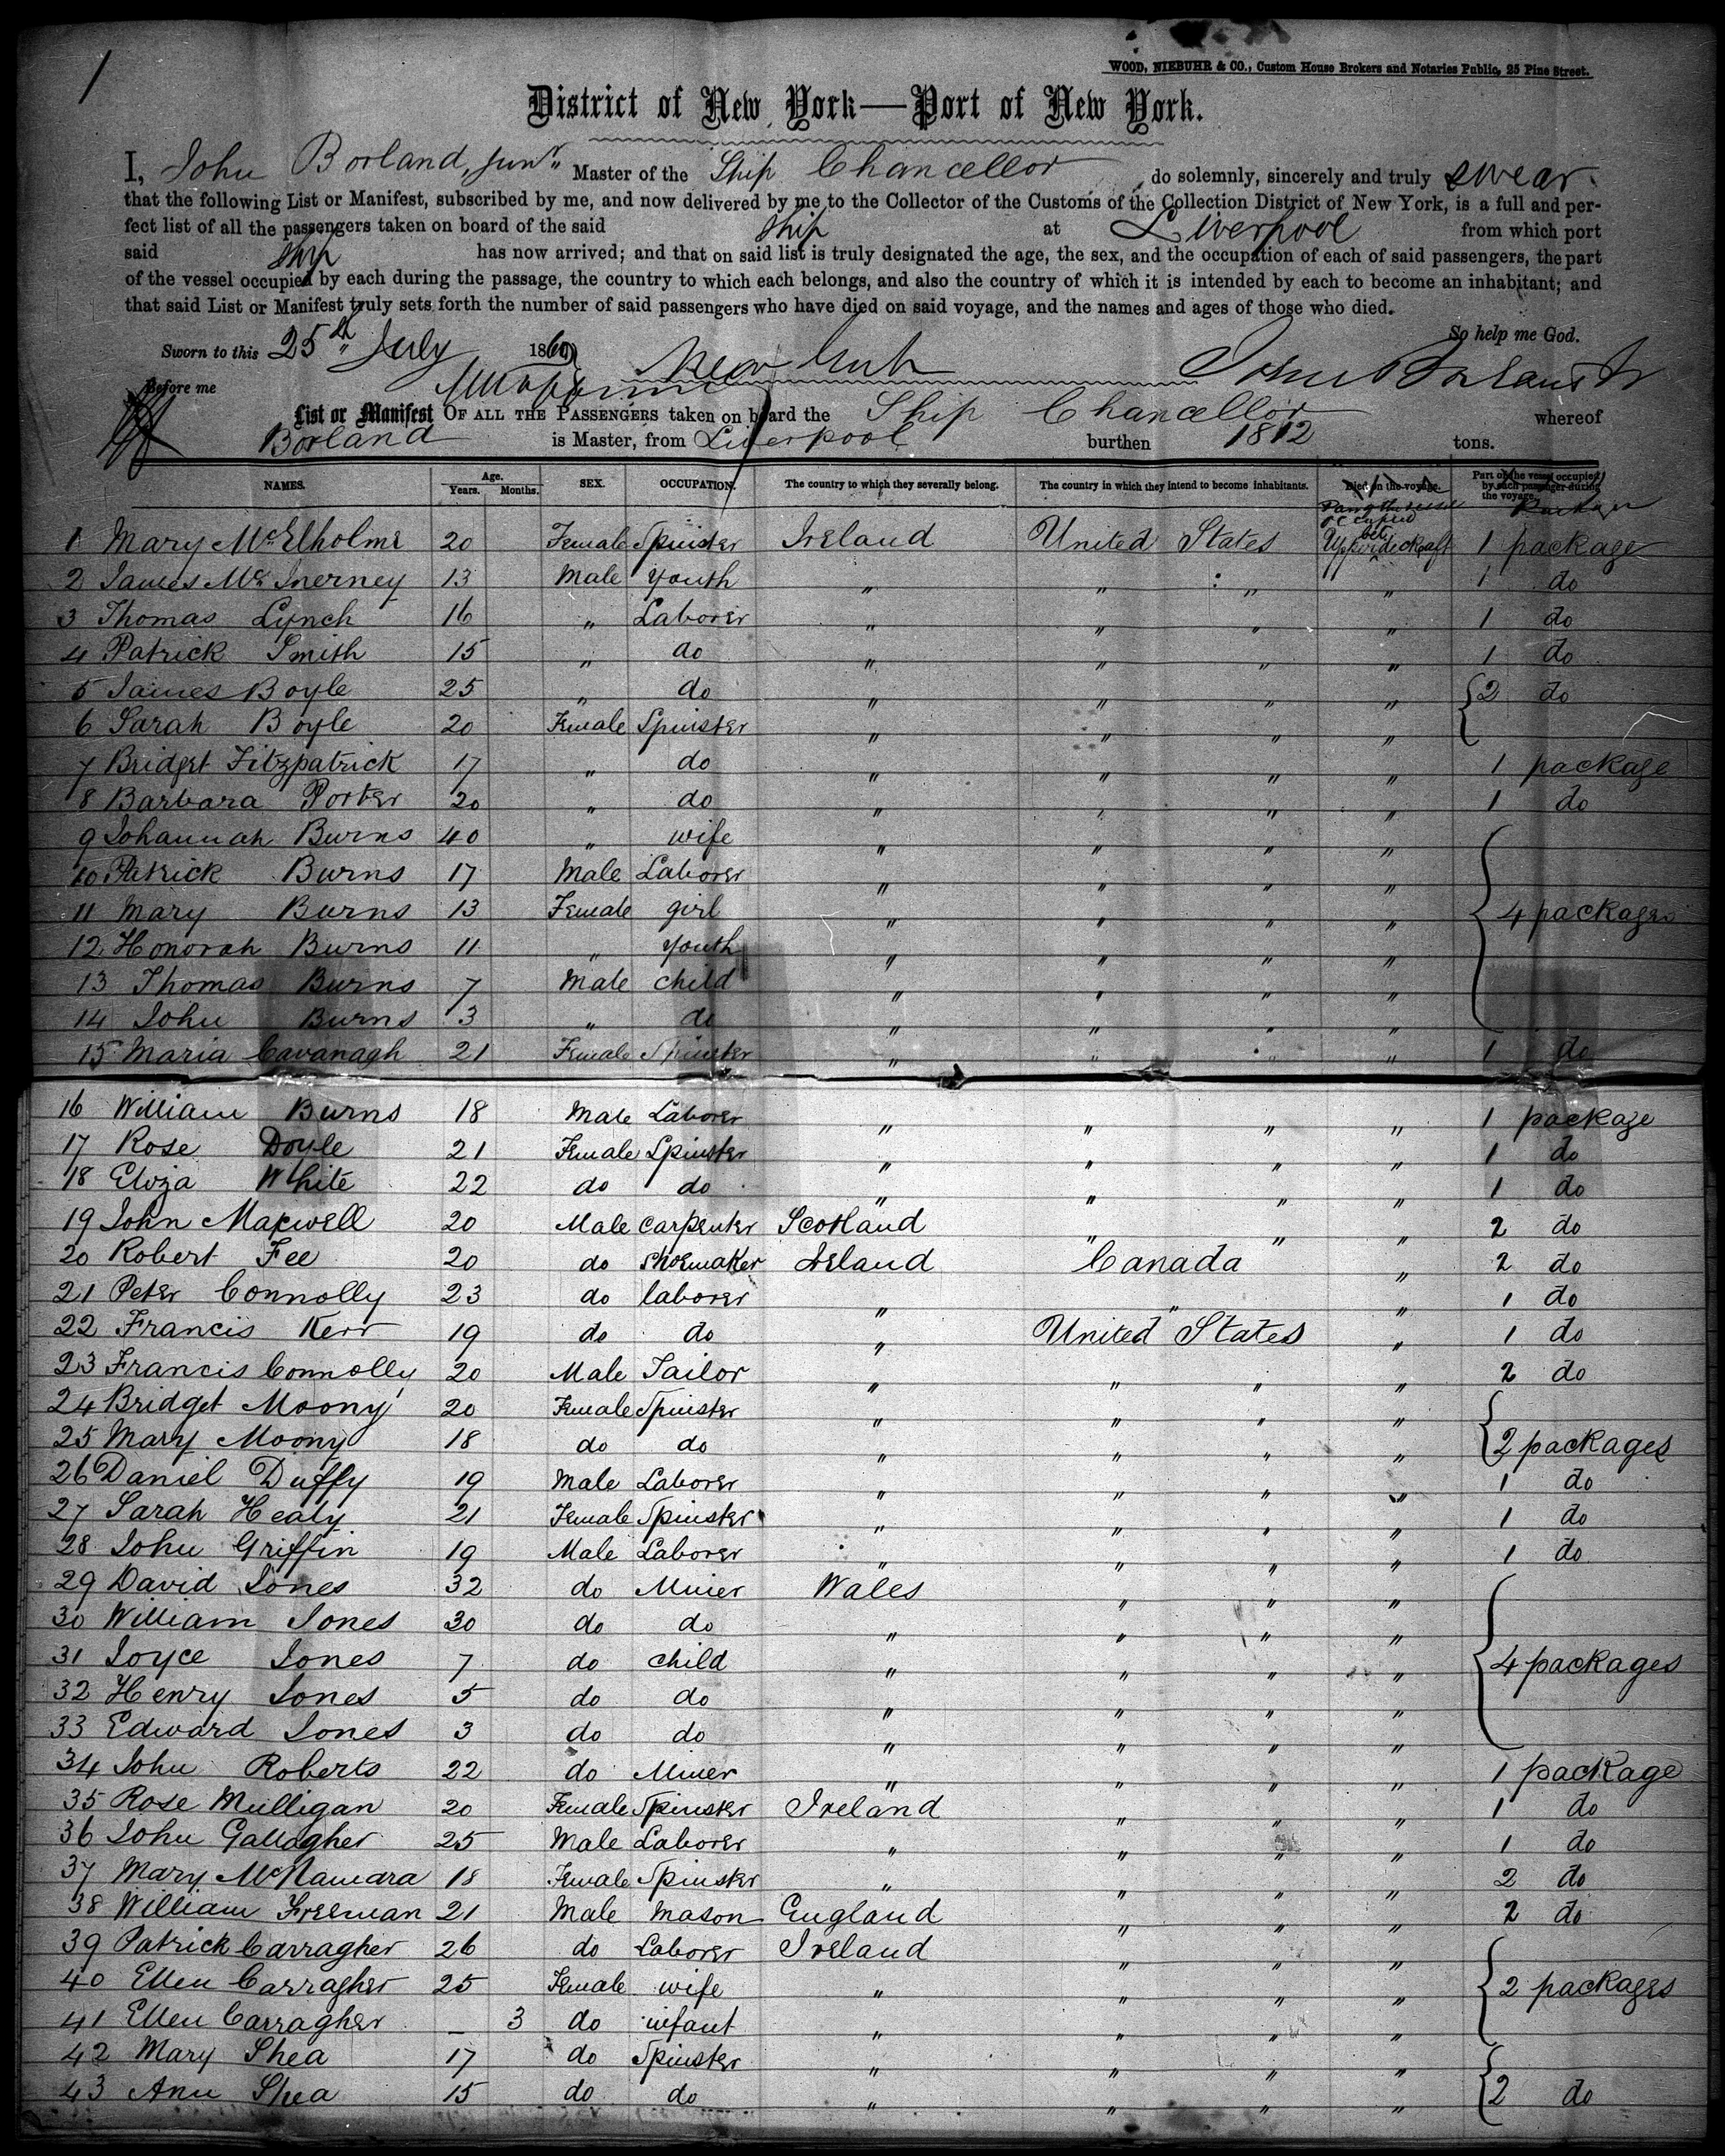 1
WOOD, NIEBUHR & CO., Custom House Brokers and Notaries Public, 25 Pine Street.
District of New York—Port of New York.
I, John Borland, junr Master of the Ship Chancellor do solemnly, sincerely and truly swear
that the following List or Manifest, subscribed by me, and now delivered by me to the Collector of the Customs of the Collection District of New York, is a full and per-
fect list of all the passengers taken on board of the said ship at Liverpool from which port
said ship has now arrived; and that on said list is truly designated the age, the sex, and the occupation of each of said passengers, the part
of the vessel occupied by each during the passage, the country to which each belongs, and also the country of which it is intended by each to become an inhabitant; and
that said List or Manifest truly sets forth the number of said passengers who have died on said voyage, and the names and ages of those who died.
So help me God.
Sworn to this 25th July 1860 New York John Borland Jr
Before me
List or Manifest OF ALL THE PASSENGERS taken on board the Ship Chancellor whereof
Borland is Master, from Liverpool burthen 1812 tons.
NAMES. Age. Years. Months. SEX. OCCUPATION. The country to which they severally belong. The country in which they intend to become inhabitants. Died on the voyage. Part of the vessel occupied by each passenger during the voyage.
Part of the vessel occupied
1 Mary McElholme 20 Female Spinster Ireland United States Upper bet deck aft 1 package
2 James McInerney 13 Male youth " " " " 1 do
3 Thomas Lynch 16 " Laborer " " " " 1 do
4 Patrick Smith 15 " do " " " " 1 do
5 James Boyle 25 " do " " " " 2 do
6 Sarah Boyle 20 Female Spinster " " " "
7 Bridget Fitzpatrick 17 " do " " " " 1 package
8 Barbara Porter 20 " do " " " " 1 do
9 Johannah Burns 40 " wife " " " "
10 Patrick Burns 17 Male Laborer " " " "
11 Mary Burns 13 Female girl " " " " 4 packages
12 Honorah Burns 11 " youth " " " "
13 Thomas Burns 7 Male child " " " "
14 John Burns 3 " do " " " "
15 Maria Cavanagh 21 Female Spinster " " " " 1 do
16 William Burns 18 Male Laborer " " " " 1 package
17 Rose Doyle 21 Female Spinster " " " " 1 do
18 Eliza White 22 do do " " " " 1 do
19 John Maxwell 20 Male carpenter Scotland " " " 2 do
20 Robert Fee 20 do shoemaker Ireland Canada " 2 do
21 Peter Connolly 23 do laborer " " " 1 do
22 Francis Kerr 19 do do " United States " 1 do
23 Francis Connolly 20 Male Tailor " " " " 2 do
24 Bridget Moony 20 Female Spinster " " " "
25 Mary Moony 18 do do " " " " 2 packages
26 Daniel Duffy 19 Male Laborer " " " " 1 do
27 Sarah Healy 21 Female Spinster " " " " 1 do
28 John Griffin 19 Male Laborer " " " " 1 do
29 David Jones 32 do Miner Wales " " "
30 William Jones 30 do do " " " "
31 Joyce Jones 7 do child " " " " 4 packages
32 Henry Jones 5 do do " " " "
33 Edward Jones 3 do do " " " "
34 John Roberts 22 do Miner " " " " 1 package
35 Rose Mulligan 20 Female Spinster Ireland " " " 1 do
36 John Gallagher 25 Male Laborer " " " " 1 do
37 Mary McNamara 18 Female Spinster " " " " 2 do
38 William Freeman 21 Male Mason England " " " 2 do
39 Patrick Carragher 26 do Laborer Ireland " " "
40 Ellen Carragher 25 Female wife " " " " 2 packages
41 Ellen Carragher — 3 do infant " " " "
42 Mary Shea 17 do Spinster " " " "
43 Ann Shea 15 do do " " " " 2 do